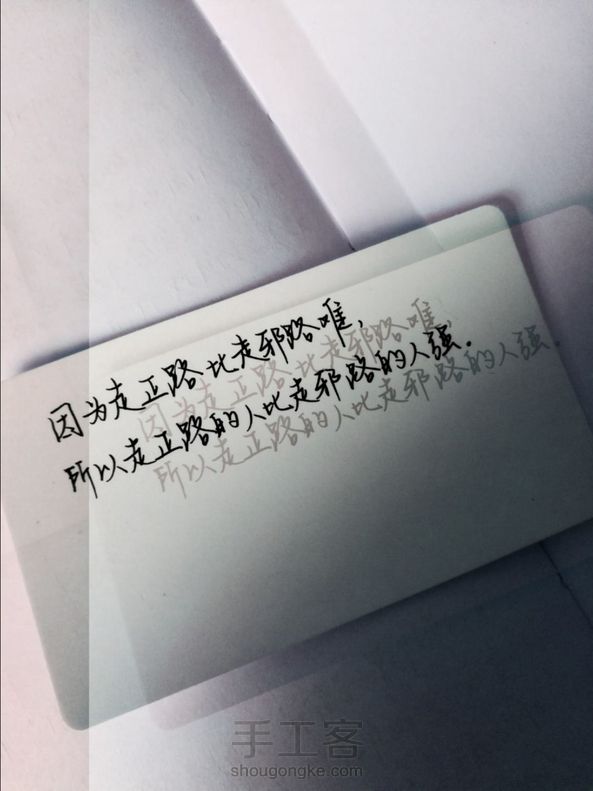 因为走正路比走邪路难,
所以走正路的人比走邪路的人强.
手工客
shougongke.com